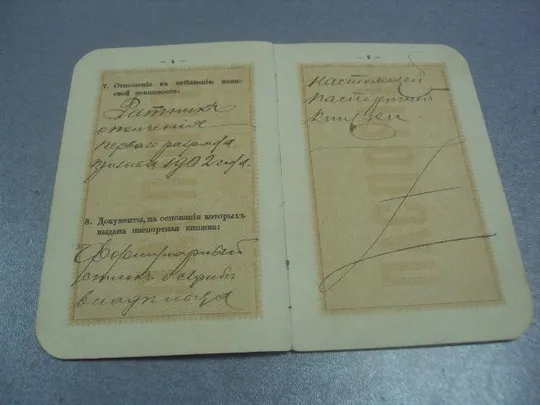 — 4 —
7. Отношеніе къ отбыванію воин-
ской повинности:
Ратникъ
ополченія
перваго разряда
призыва 1902 года.
8. Документы, на основаніи которыхъ
выдана паспортная книжка:
Формулярный
списокъ о службѣ
владѣльца
— 5 —
настоящей
паспортной
книжки.